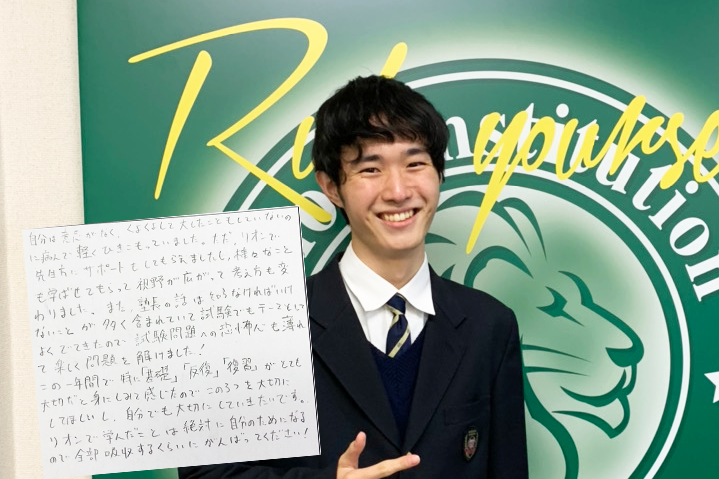 Ri
yourse
nstitution
自分は がなく、くよくよして大したこともしていないの
に病んで軽くひきこもっていました。ただ、リオンで
先生方にサポートしてもらえましたし、様々なこと
も学ばせてもらって視野が広がって考え方も変
わりました。また、塾長の話は知らなければいけ
ないことが多く含まれていて試験でもテーマとして
よくでてきたので試験問題への恐怖心も薄れ
て楽しく問題を解けました!
この一年間で特に「基礎」「反復」「復習」がとても
大切だと身にしみて感じたのでこの3つを大切に
してほしいし、自分でも大切にしていきたいです。
リオンで学んだことは絶対に自分のためになる
ので全部吸収するくらいにがんばってください!